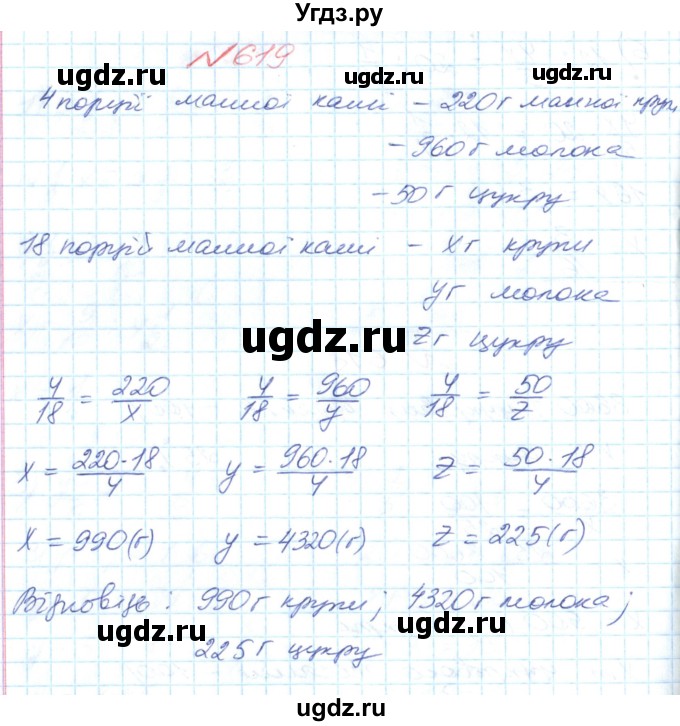 Угдз.ру
№ 619
4 порції манної каші - 220 г манної крупи
- 960 г молока
- 50 г цукру
18 порцій манної каші - x г крупи
y г молока
z г цукру
4/18 = 220/x 4/18 = 960/y 4/18 = 50/z
x = 220·18/4 y = 960·18/4 z = 50·18/4
x = 990(г) y = 4320(г) z = 225(г)
Відповідь: 990 г крупи; 4320 г молока;
225 г цукру
ugdz.ru
ugdz.ru
ugdz.ru
ugdz.ru
ugdz.ru
ugdz.ru
ugdz.ru
ugdz.ru
ugdz.ru
ugdz.ru
ugdz.ru
ugdz.ru
Угдз.ру